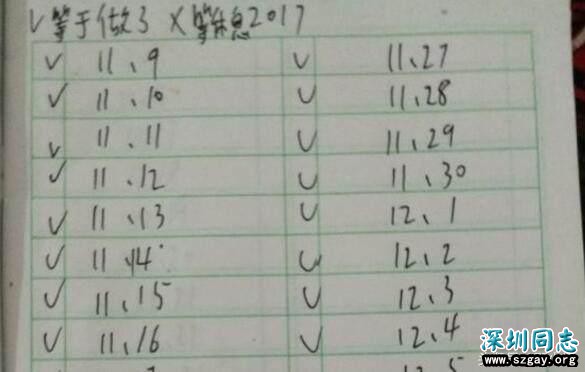 √等于做了 ×等休息2017
√ 11、9 √ 11、27
√ 11、10 √ 11、28
√ 11、11 √ 11、29
√ 11、12 √ 11、30
√ 11、13 √ 12、1
√ 11、14 √ 12、2
√ 11、15 √ 12、3
√ 11、16 √ 12、4
深圳同志
www.szgay.org